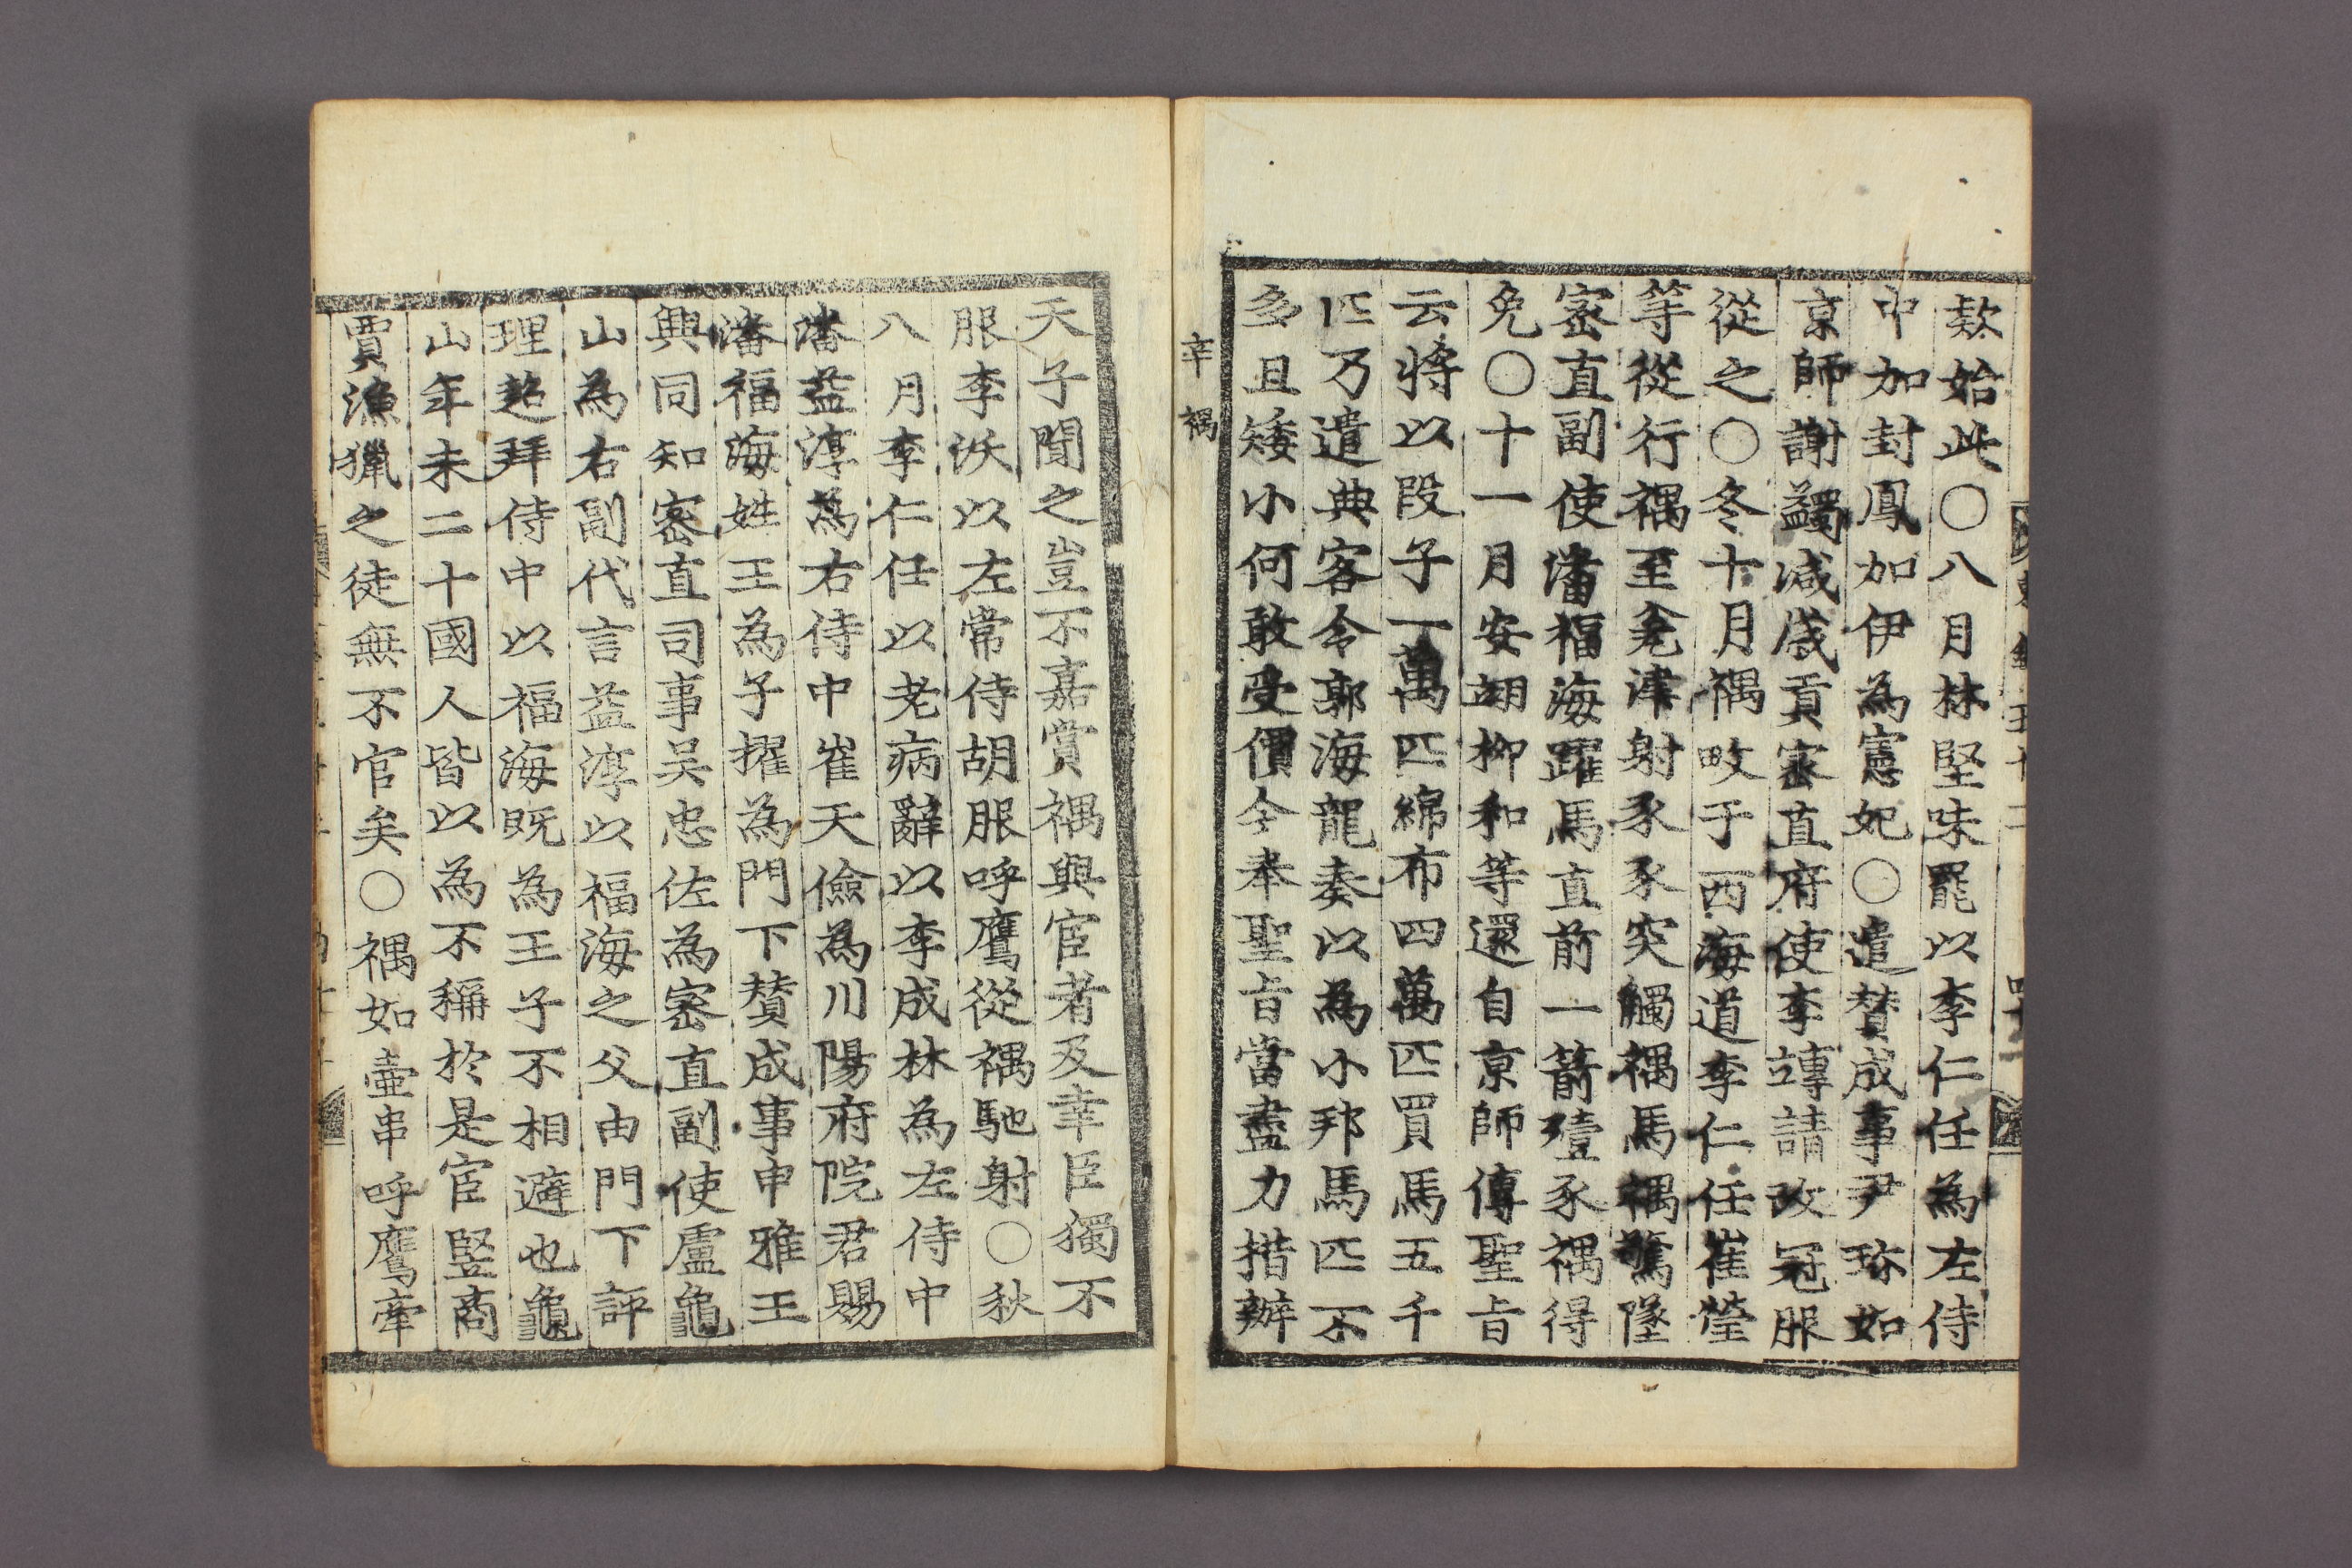 欵始此○八月林堅味罷以李仁任為左侍
中加封鳳加伊為憲妃○遣贊成事尹珎如
京師謝蠲减歲貢密直府使李竱請改冠服
從之○冬十月禑畋于西海道李仁任崔瑩
等從行禑至兊津射豕豕突觸禑馬禑驚墜
密直副使潘福海躍馬直前一箭殪豕禑得
免○十一月安翊柳和等還自京師傳聖旨
云將以段子一萬匹綿布四萬匹買馬五千
匹乃遣典客令郭海龍奏以為小邦馬匹不
多且矮小何敢受價今奉聖旨當盡力措辦
辛禑
天子聞之豈不嘉賞禑與宦者及幸臣獨不
服李沃以左常侍胡服呼鷹從禑馳射○秋
八月李仁任以老病辭以李成林為左侍中
潘益淳為右侍中崔天儉為川陽府院君賜
潘福海姓王為子擢為門下贊成事申雅王
興同知密直司事吴忠佐為密直副使盧龜
山為右副代言益淳以福海之父由門下評
理超拜侍中以福海既為王子不相避也龜
山年未二十國人皆以為不稱於是宦竪商
賈漁獵之徒無不官矣○禑如壷串呼鷹牽